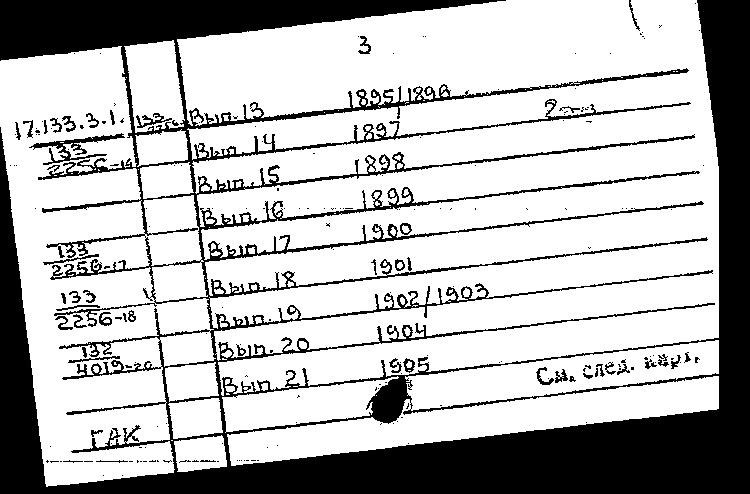 3
17.133.3.1. 133 Вып. 13 1895/1896
133 Вып. 14 1897
2256-14
Вып. 15 1898
Вып. 16 1899
133 Вып. 17 1900
2256-17
Вып. 18 1901
133
2256-18 Вып. 19 1902/1903
132 Вып. 20 1904
4019-20
Вып. 21 1905
См. след. карт.
ГАК